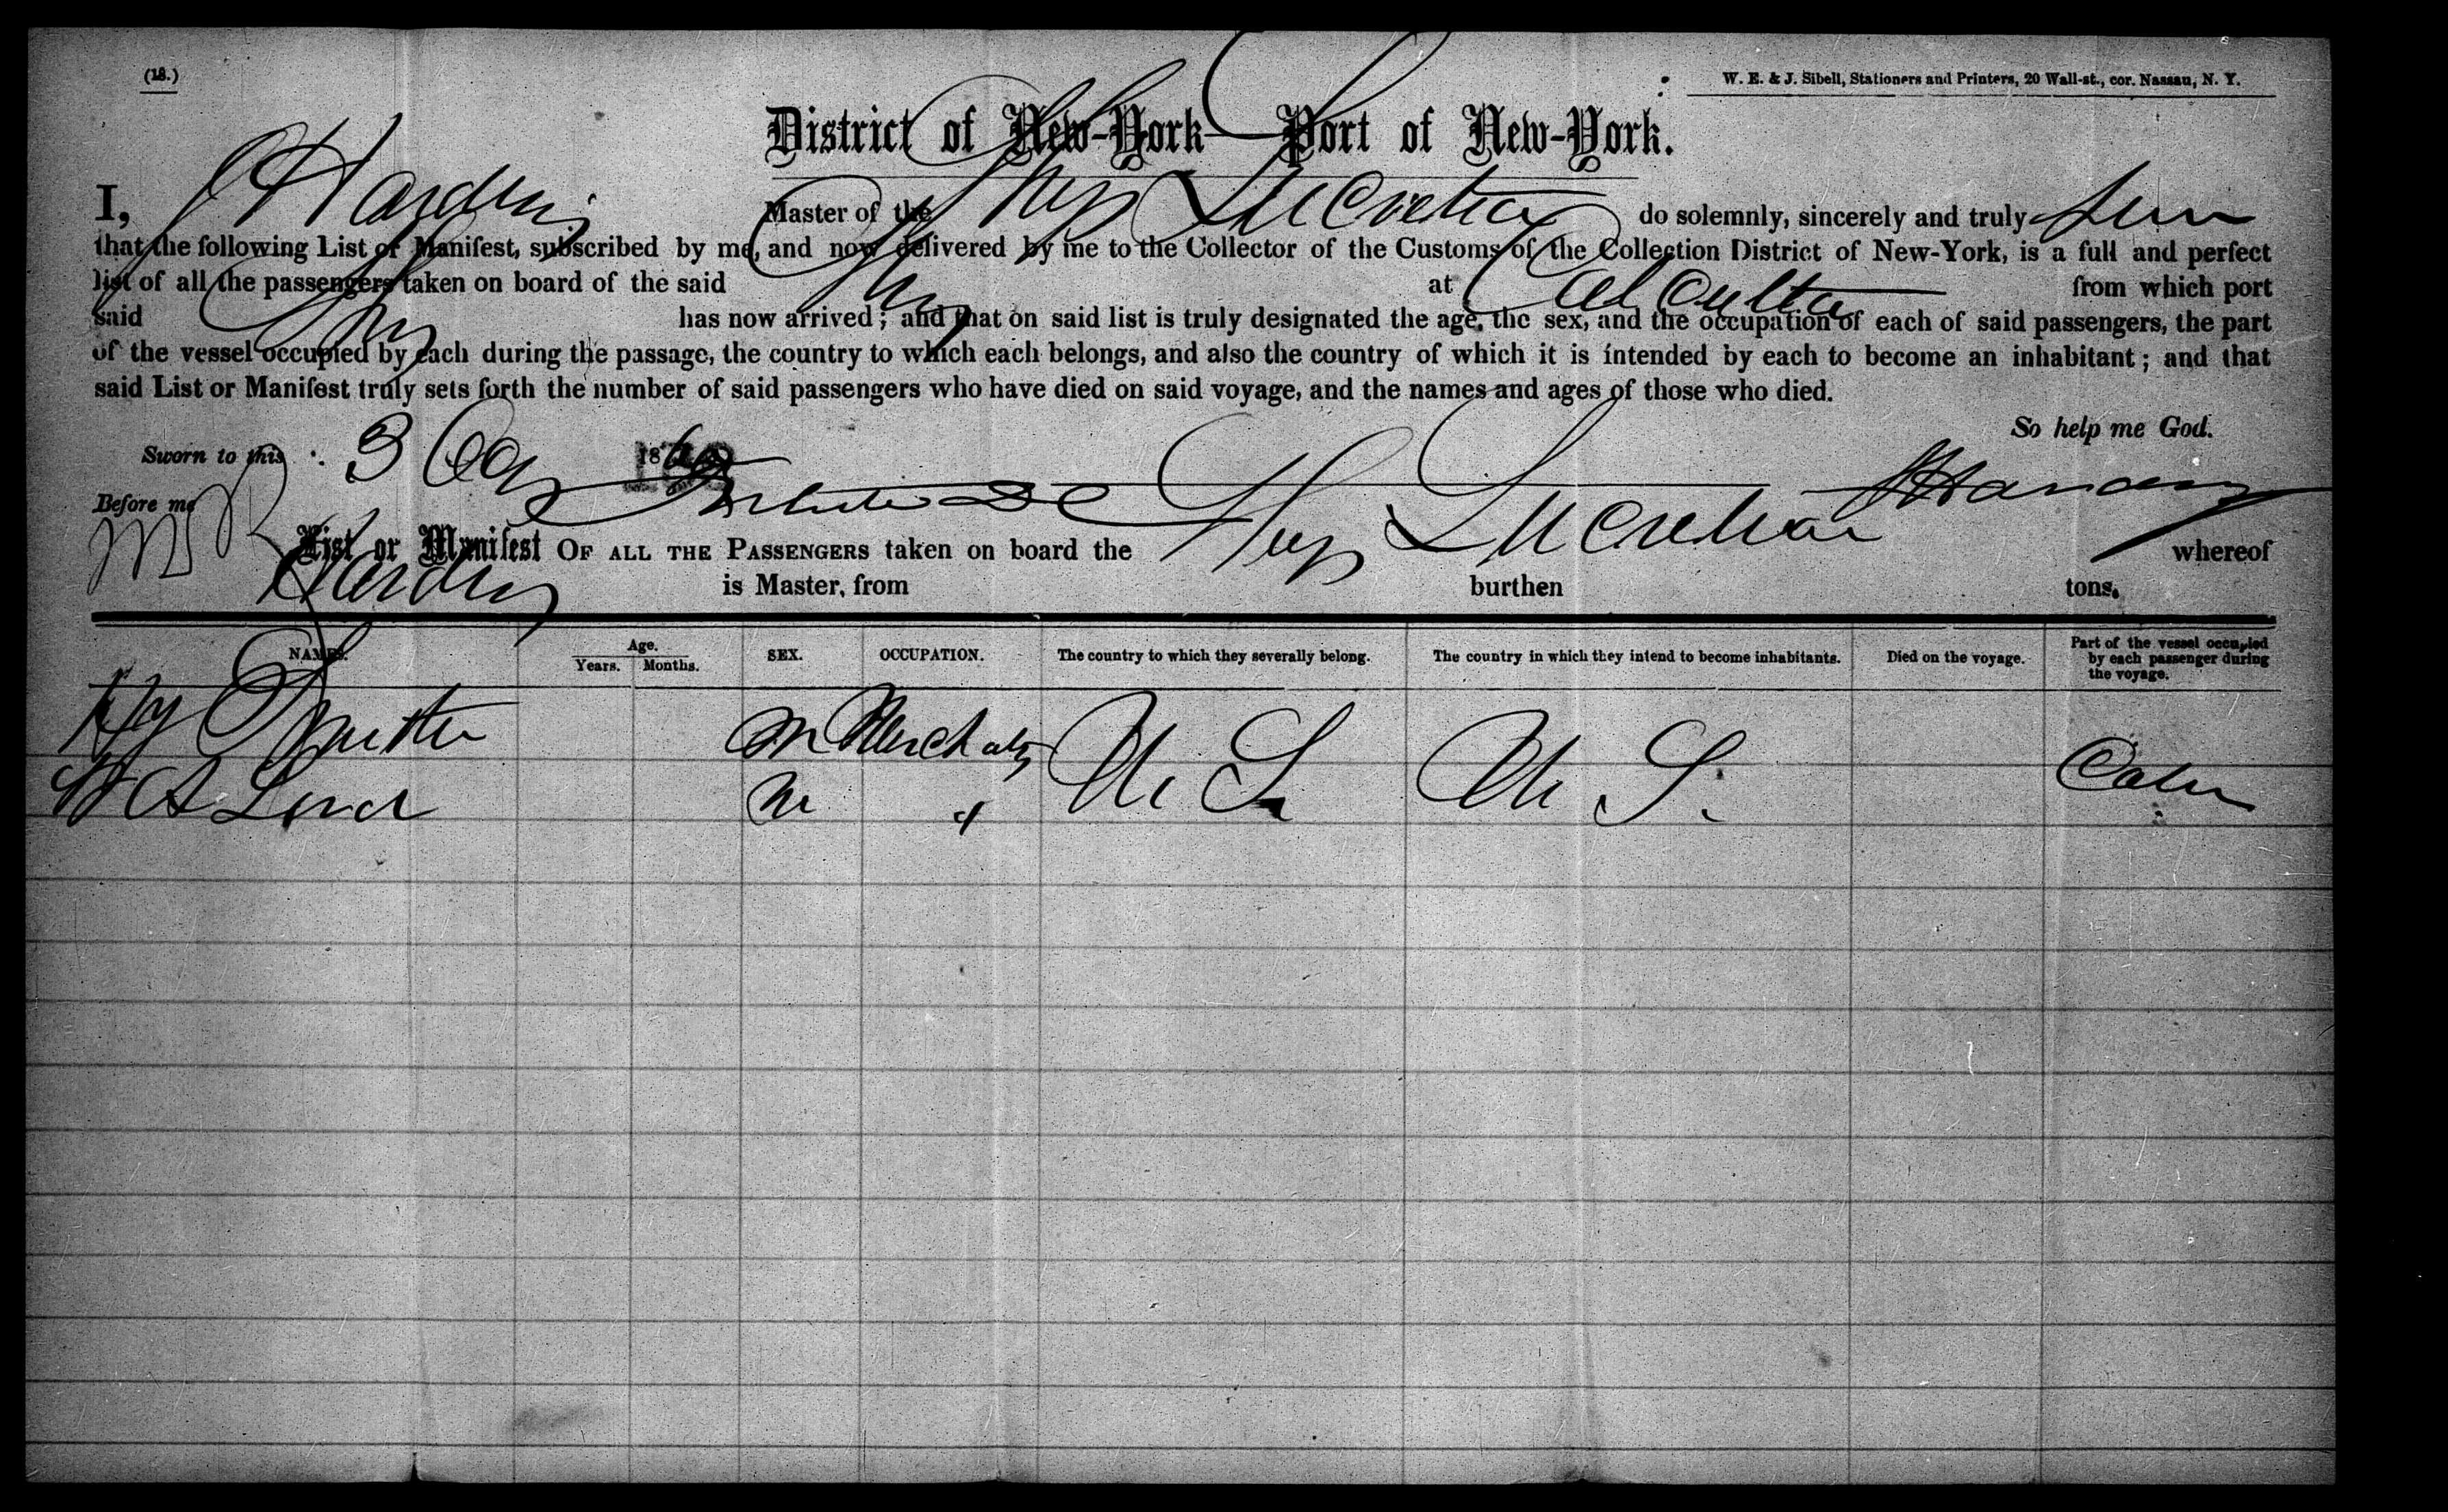 (18.)
W. E. & J. Sibell, Stationers and Printers, 20 Wall-st., cor. Nassau, N. Y.
District of New-York—Port of New-York.
I, J Harding Master of the Ship Lucretia do solemnly, sincerely and truly
that the following List or Manifest, subscribed by me, and now delivered by me to the Collector of the Customs of the Collection District of New-York, is a full and perfect
list of all the passengers taken on board of the said Ship at Calcutta from which port
said Ship has now arrived; and that on said list is truly designated the age, the sex, and the occupation of each of said passengers, the part
of the vessel occupied by each during the passage, the country to which each belongs, and also the country of which it is intended by each to become an inhabitant; and that
said List or Manifest truly sets forth the number of said passengers who have died on said voyage, and the names and ages of those who died.
So help me God.
Sworn to this 3 186
Before me
List or Manifest OF ALL THE PASSENGERS taken on board the Ship Lucretia whereof
Harding is Master, from burthen tons.
NAMES. Age. Years. Months. SEX. OCCUPATION. The country to which they severally belong. The country in which they intend to become inhabitants. Died on the voyage. Part of the vessel occupied by each passenger during the voyage.
Hy Smith M U S U S. Cabin
A Lord M